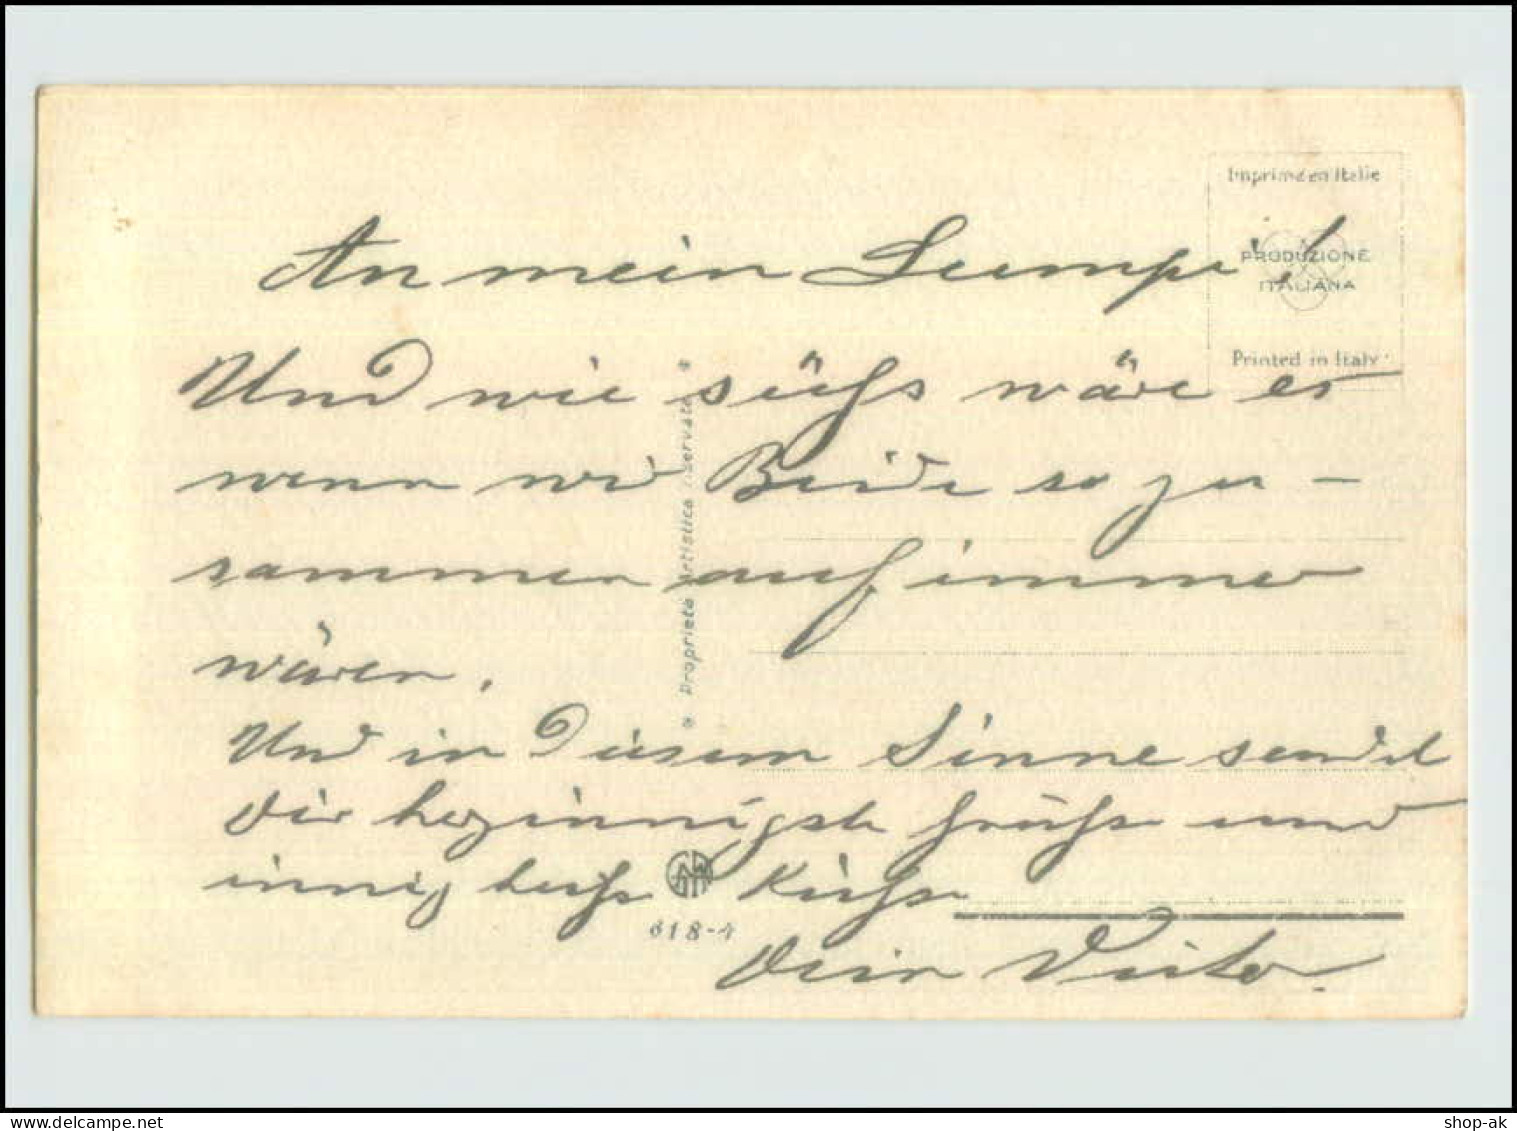 Imprimé en Italie
PRODUZIONE
ITALIANA
Printed in Italy
An mein Lumpi!
Und wie süßs wäre es
wenn wir Beide so zu -
sammen auf immer
wären.
Und in Diesem Sinne sendet
Dir herzinnigste Grüße und
innig heiße Küße
Dein
Proprietà artistica riservata
618-4
shop-ak.com
shop-ak